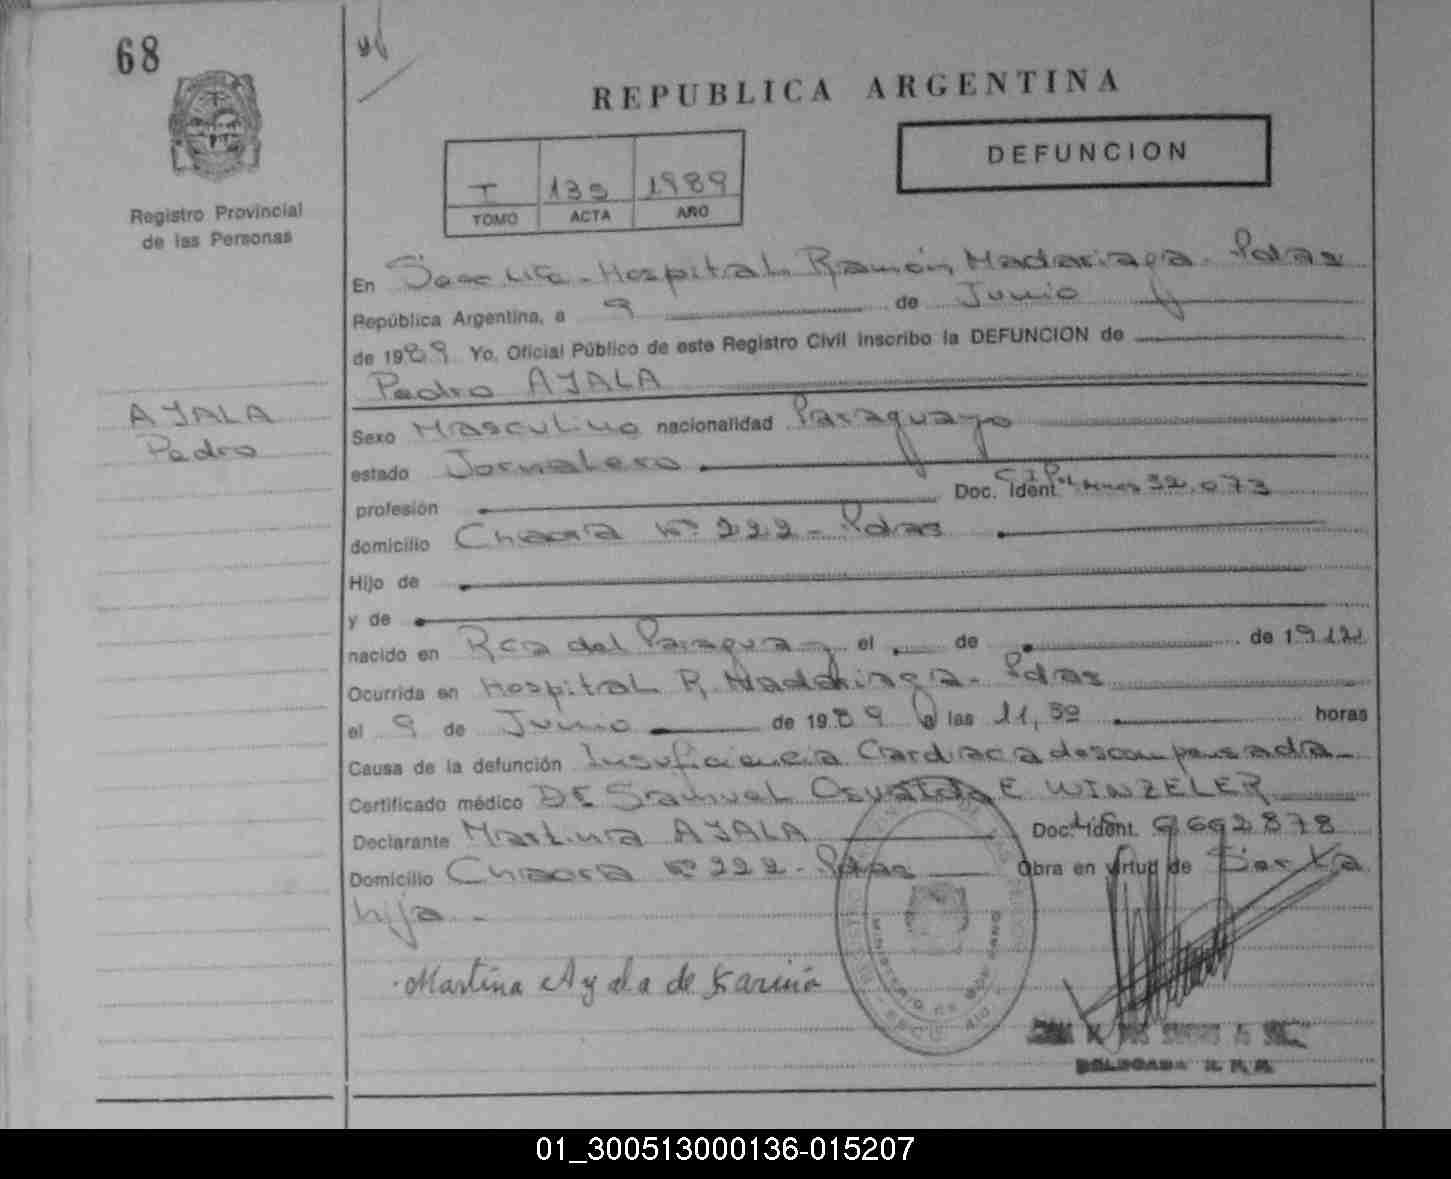 68
REPUBLICA ARGENTINA
DEFUNCION
I 139 1989
TOMO ACTA AÑO
Registro Provincial
de las Personas
En Hospital Ramón Madariaga - Pdas
República Argentina, a 9 de Junio
de 1989 Yo, Oficial Público de este Registro Civil inscribo la DEFUNCION de
Pedro AYALA
AYALA
Pedro
Sexo Masculino nacionalidad Paraguayo
estado Jornalero
profesión Doc. Ident. 32.073
domicilio Chacra Nº 222 - Pdas
Hijo de
y de
nacido en Rca del Paraguay el de de 1912
Ocurrida en Hospital R. Madariaga - Pdas
el 9 de Junio de 1989 a las 11,30 horas
Causa de la defunción Insuficiencia Cardiaca descompensada
Certificado médico Dr Samuel Osvaldo E WINZELER
Declarante Martina AYALA Doc. Ident. 9692878
Domicilio Chacra Nº 222 - Pdas Obra en virtud de Ser la
hija -
Martina Ayala de Fariña
DELEGADA R. P. P.
01_300513000136-015207